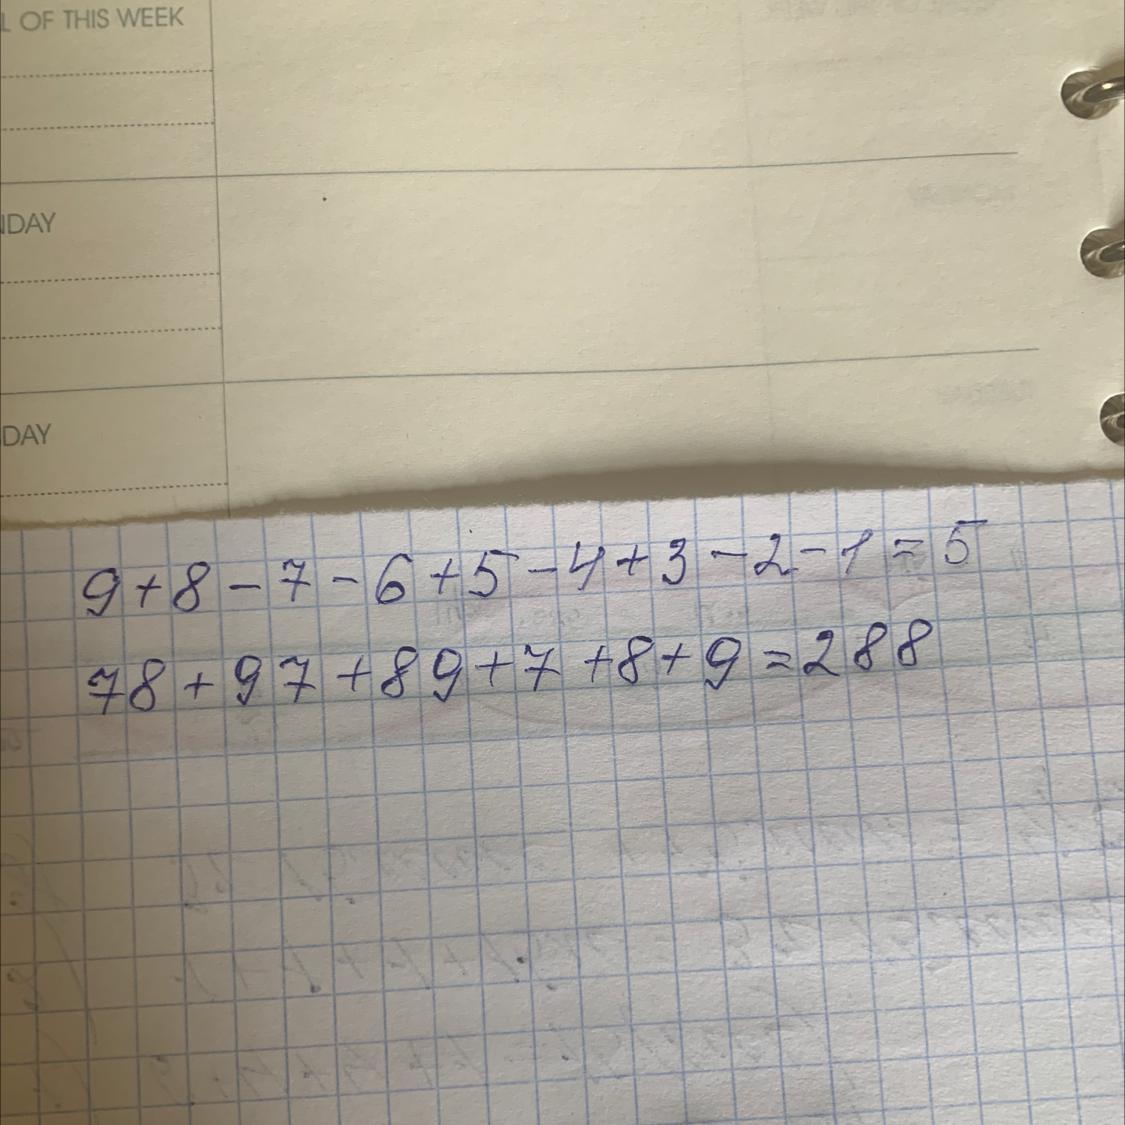 L OF THIS WEEK
NDAY
DAY
9+8-7-6+5-4+3-2-1=5
78+97+89+7+8+9=288